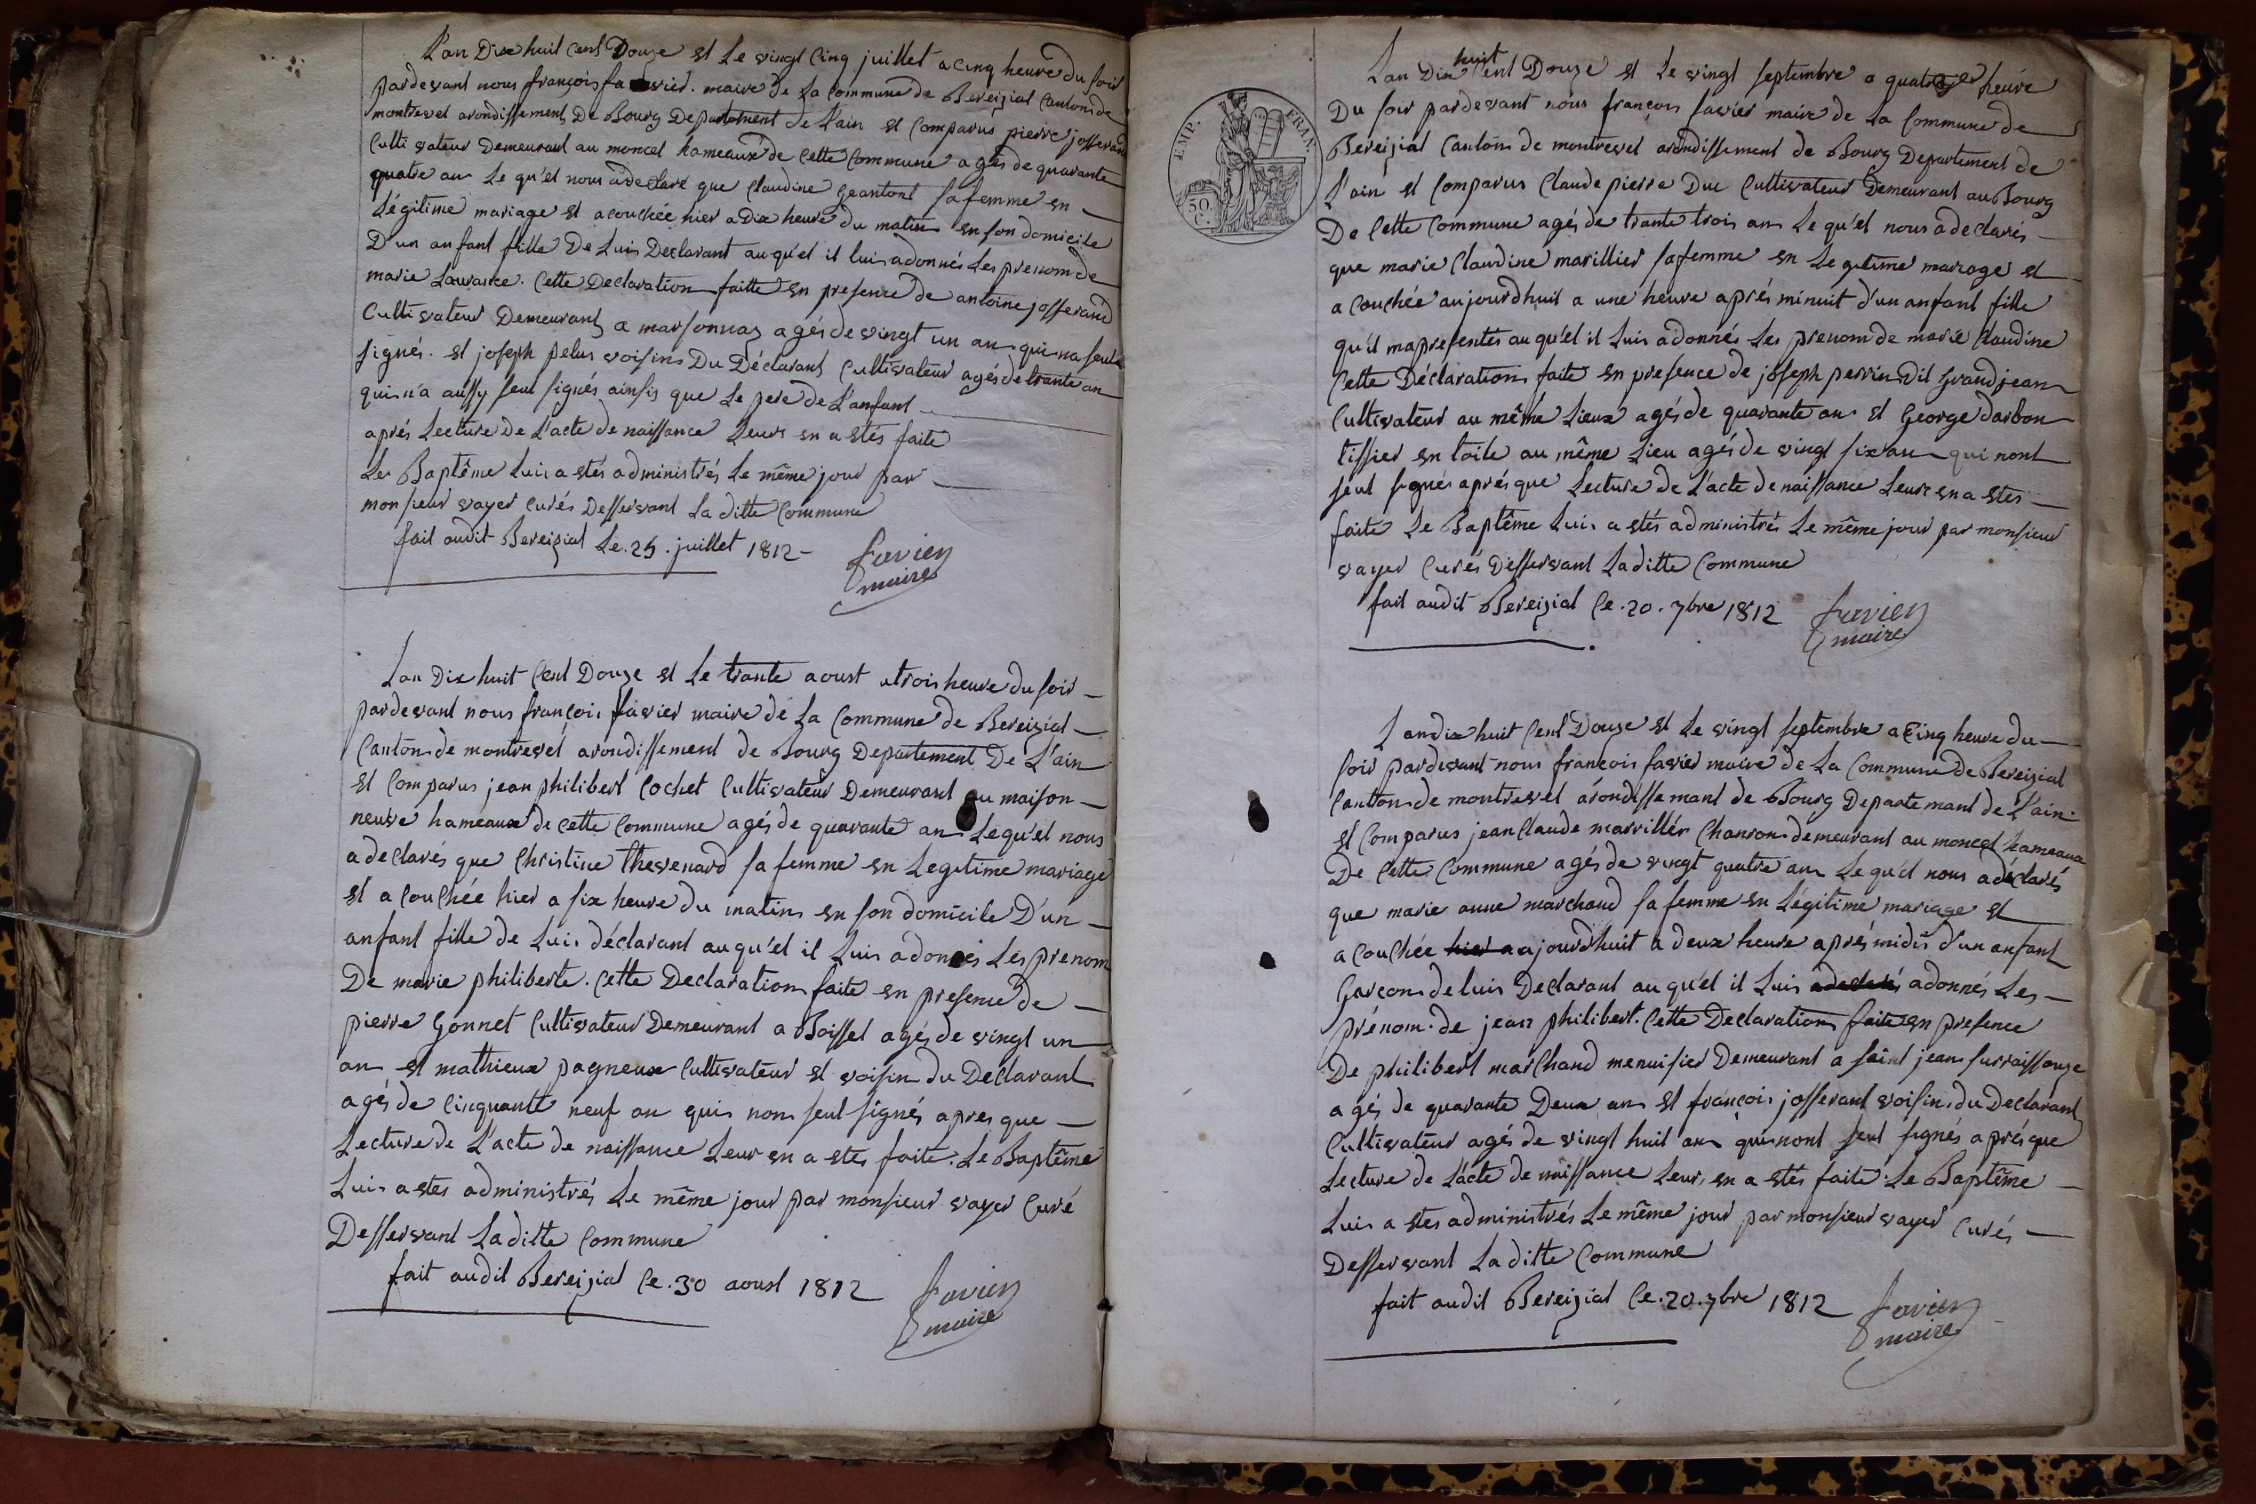 L'an Dix huit Cent Douze et Le vingt Cinq juillet a cinq heure du soir
pardevant nous françois favier. maire de La Commune de Bereizial Canton de
montrevel arondissement De Bourg Departement de L'ain et Comparus pierre josserand
Cultivateur Demeurant au moncel hameaux de Cette Commune agés de quarante
quatre an Le qu'el nous a declaré que Claudine geantont sa femme en
Légitime mariage et acouchée hier a Dix heure du matin en son domicile
D'un anfant fille De Luis Declarant auqu'el il luis adonnés Les prenom de
marie Laurance. Cette Declaration faitte en presence de antoine josserand
Cultivateur Demeurant a marsonnaz agés de vingt un an qui na seul
signés. et joseph pelus voisin Du Déclarant Cultivateur agés de trante an
qui n'a aussy seul signés ainsis que Le pere de L'anfant
aprés Lecture de L'acte de naissance Leurs en a etés faite
Le Baptême Luis a etés administrés Le même jour par
monsieur vayer curés Desservant La ditte Commune
fait audit Bereizial Le. 25. juillet 1812 -
favier
maire
Lan Dix huit Cent Douze et Le trante aoust a trois heure du soir
pardevant nous françois favier maire de La Commune de Bereizial
Canton de montrevel arondissement de Bourg Departement De L'ain
et Comparus jean philibert Cochet Cultivateur Demeurant au maison
neuve hameaux de cette Commune agés de quarante an Lequ'el nous
a declarés que Christine thevenard sa femme en Legitime mariage
et a Couchée hier a six heure du matin en son domicile D'un
anfant fille de Luis déclarant auqu'el il Luis adonnés Les prenom
De marie philiberte. Cette Declaration faite en presence de
pierre Gonnet Cultivateur Demeurant a Boissel agés de vingt un
an et mathieux pagneux Cultivateur et voisin du Declarant
agés de Cinquante neuf an qui nom seul signés apres que
Lecture de L'acte de naissance Leur en a etés faite. Le Baptême
Luis a etés administrés Le même jour par monsieur vayer Curé
Desservant La ditte Commune
fait audit Bereizial Ce. 30 aoust 1812
favier
maire
EMP. FRAN.
50 C.
Lan Dix huit Cent Douze et Le vingt septembre a quatre heure
Du soir pardevant nous françois favier maire de La Commune de
Bereizial Canton de montrevel arondissement de Bourg Departement de
L'ain et Comparus Claude pierre Duc Cultivateur Demeurant au Bourg
De Cette Commune agés de trante trois an Le qu'el nous a declarés
que marie Claudine marillier sa femme en Legitime mariage et
a Couchée aujourdhuit a une heure aprés minuit d'un anfant fille
qu'il mapresentés auqu'el il Luis adonnés Les prenom de marie Claudine
Cette Déclaration faite en presence de joseph perrin Dit grandjean
Cultivateur au même Lieux agés de quarante an et George darbon
tissier en toile au même Lieu agés de vingt six an qui nont
seul signés aprés que Lecture de L'acte de naissance Leurs en a etes
faite Le Baptême Luis a etés administrés Le même jour par monsieur
vayer Curés Desservant La ditte Commune
fait audit Bereizial Ce. 20. 7bre 1812
favier
maire
Landix huit Cent Douze et Le vingt septembre a Cinq heure du
soir pardevant nous francois favier maire de La Commune de Bereizial
Canton de montrevel arondissemant de Bourg Departemant de L'ain
et Comparus jean Claude marrillér Charron demeurant au moncel hameaux
De Cette Commune agés de vingt quatre an Le qu'el nous a déclarés
que marie anne marchand sa femme en Légitime mariage et
a Couchée hier a aujourd'huit a deux heure aprés midis d'un anfant
Garçon de luis Declarant auqu'el il Luis a declaré adonnés Les
prénom. de jean philibert. Cette Declaration faite en presence
De philibert marchand menuisier Demeurant a saint jean surraissouze
agés de quarante Deux an et françois josserant voisin du Declarant
Cultivateur agés de vingt huit an qui nont seul signés aprés que
Lecture de L'acte de naissance Leurs en a etés faite. Le Baptême
Luis a etes administrés Le même jour par monsieur vayer Curés
Desservant La ditte Commune
fait audit Bereizial Ce. 20. 7bre 1812
favier
maire